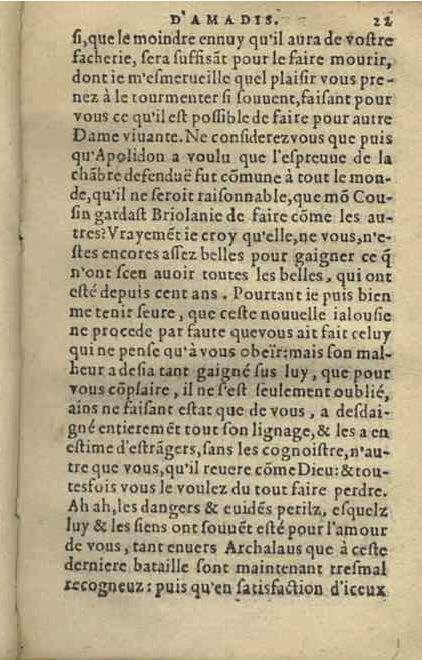 D'AMADIS. 22
si, que le moindre ennuy qu'il aura de vostre
facherie, sera suffisãt pour le faire mourir,
dont ie m'esmerueille quel plaisir vous pre-
nez à le tourmenter si souuent, faisant pour
vous ce qu'il est possible de faire pour autre
Dame viuante. Ne considerez vous que puis
qu'Apolidon a voulu que l'espreuue de la
chãbre defenduë fut cõmune à tout le mon-
de, qu'il ne seroit raisonnable, que mõ Cou-
sin gardast Briolanie de faire cõme les au-
tres? Vrayemẽt ie croy qu'elle, ne vous, n'e-
stes encores assez belles pour gaigner ce q̃
n'ont sceu auoir toutes les belles, qui ont
esté depuis cent ans. Pourtant ie puis bien
me tenir seure, que ceste nouuelle ialousie
ne procede par faute que vous ait fait celuy
qui ne pense qu'à vous obeïr: mais son mal-
heur a desia tant gaigné sus luy, que pour
vous cõplaire, il ne s'est seulement oublié,
ains ne faisant estat que de vous, a desdai-
gné entieremẽt tout son lignage, & les a en
estime d'estrãgers, sans les cognoistre, n'au-
tre que vous, qu'il reuere cõme Dieu: & tou-
tesfois vous le voulez du tout faire perdre.
Ah ah, les dangers & euidẽs perilz, esquelz
luy & les siens ont souuẽt esté pour l'amour
de vous, tant enuers Archalaus que à ceste
derniere bataille sont maintenant tresmal
recogneuz: puis qu'en satisfaction d'iceux